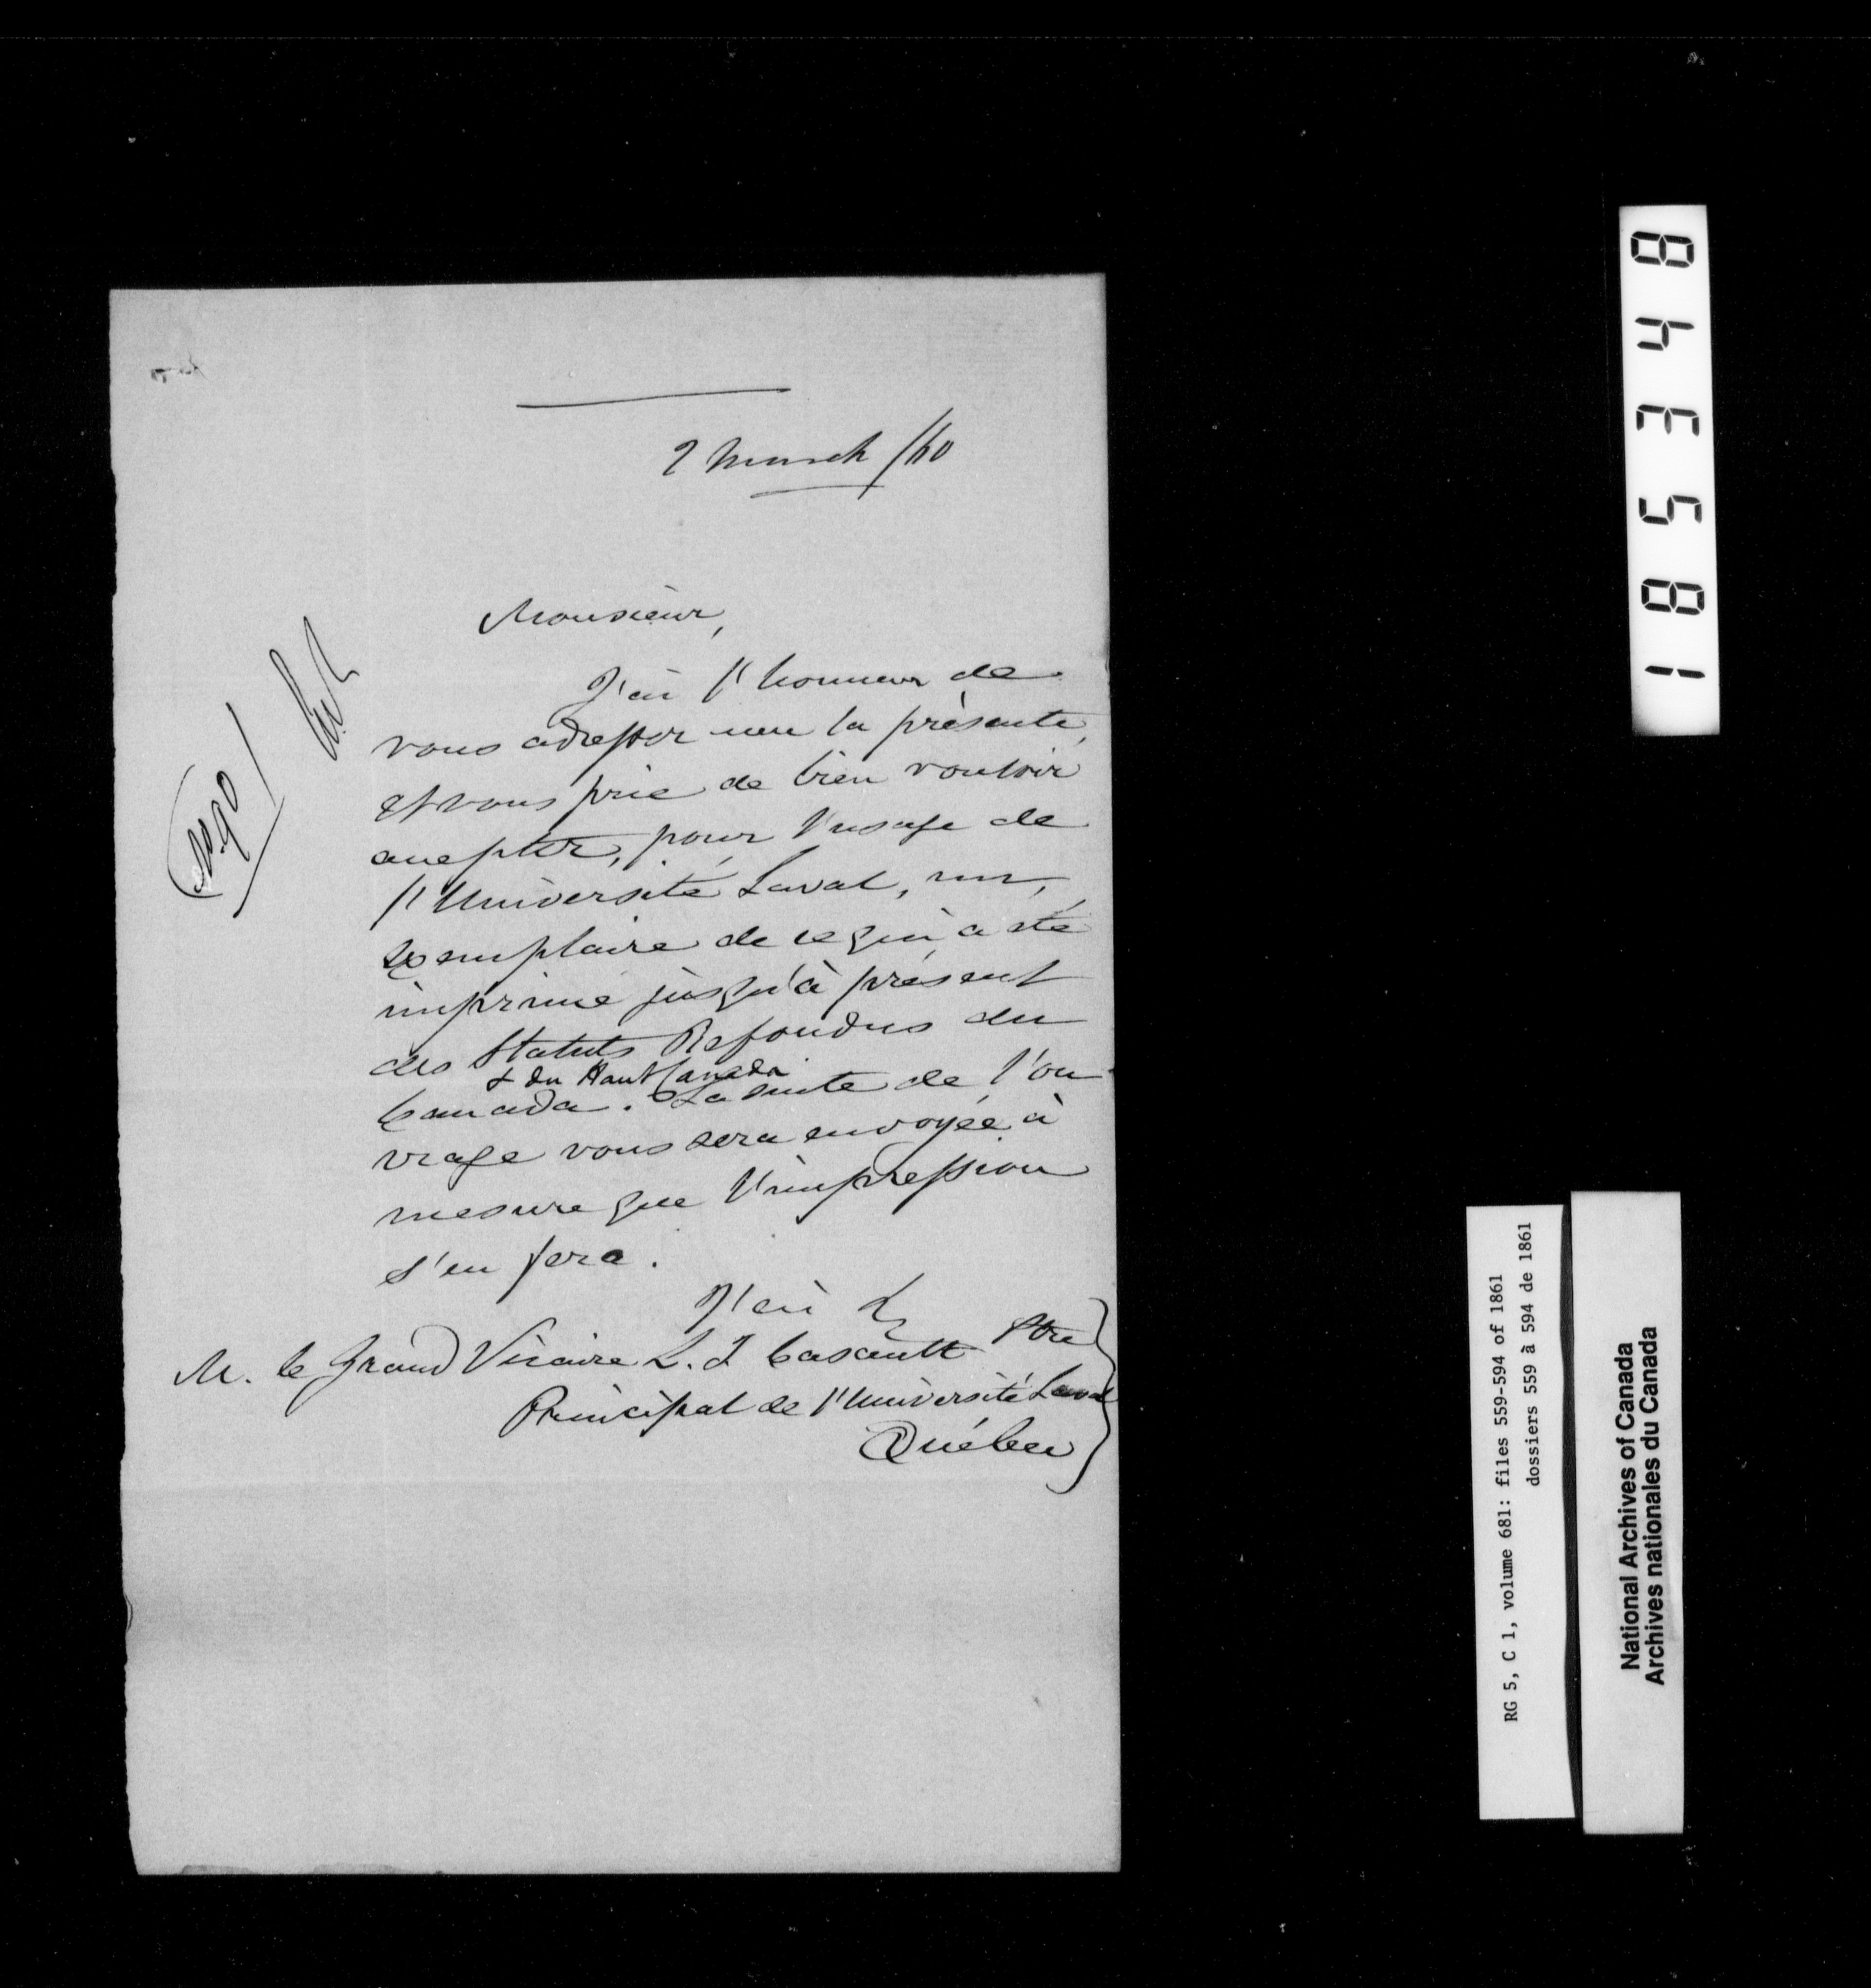 2 March /60
Monsieur,
J'ai l'honneur de
vous adresser avec la présente,
et vous prie de bien vouloir
accepter, pour l'usage de
l'Université Laval, un
exemplaire de ce qui a été
imprimé jusqu'à présent
des Statuts Refondus du
& du Haut Canada
Canada. La suite de l'ou
vrage vous sera envoyée à
mesure que l'impression
s'en fera.
J'ai &
M. le Grand Vicaire L. J Casault Ptre
Principal de l'Université Laval
Québec
No 90
184358
RG 5, C 1, volume 681: files 559-594 of 1861
dossiers 559 à 594 de 1861
National Archives of Canada
Archives nationales du Canada